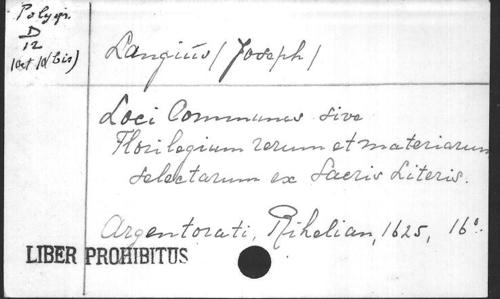 Polygr.
D
12
Langius (Joseph)
Loci Communes sive
Florilegium rerum et materiarum
selectarum ex Sacris Literis.
Argentorati, Rihelian, 1625, 16°.
LIBER PROHIBITUS